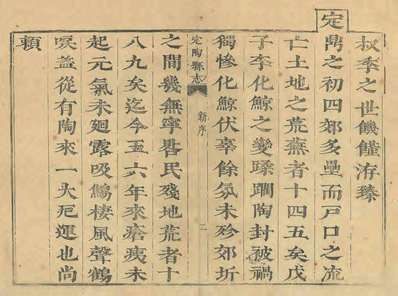 叔季之世饑饉洊臻
定鼎之初四郊多壘而戶口之流
亡土地之荒蕪者十四五矣戊
子李化鯨之變蹂躙陶封被禍
獨慘化鯨伏辜餘氛未殄郊圻
定陶縣志 新序 二
之間幾無寧晷民殘地荒者十
八九矣迄今五六年來瘡痍未
起元氣未廻露吸棲風聲鶴
唳葢從有陶來一大厄運也尚
賴